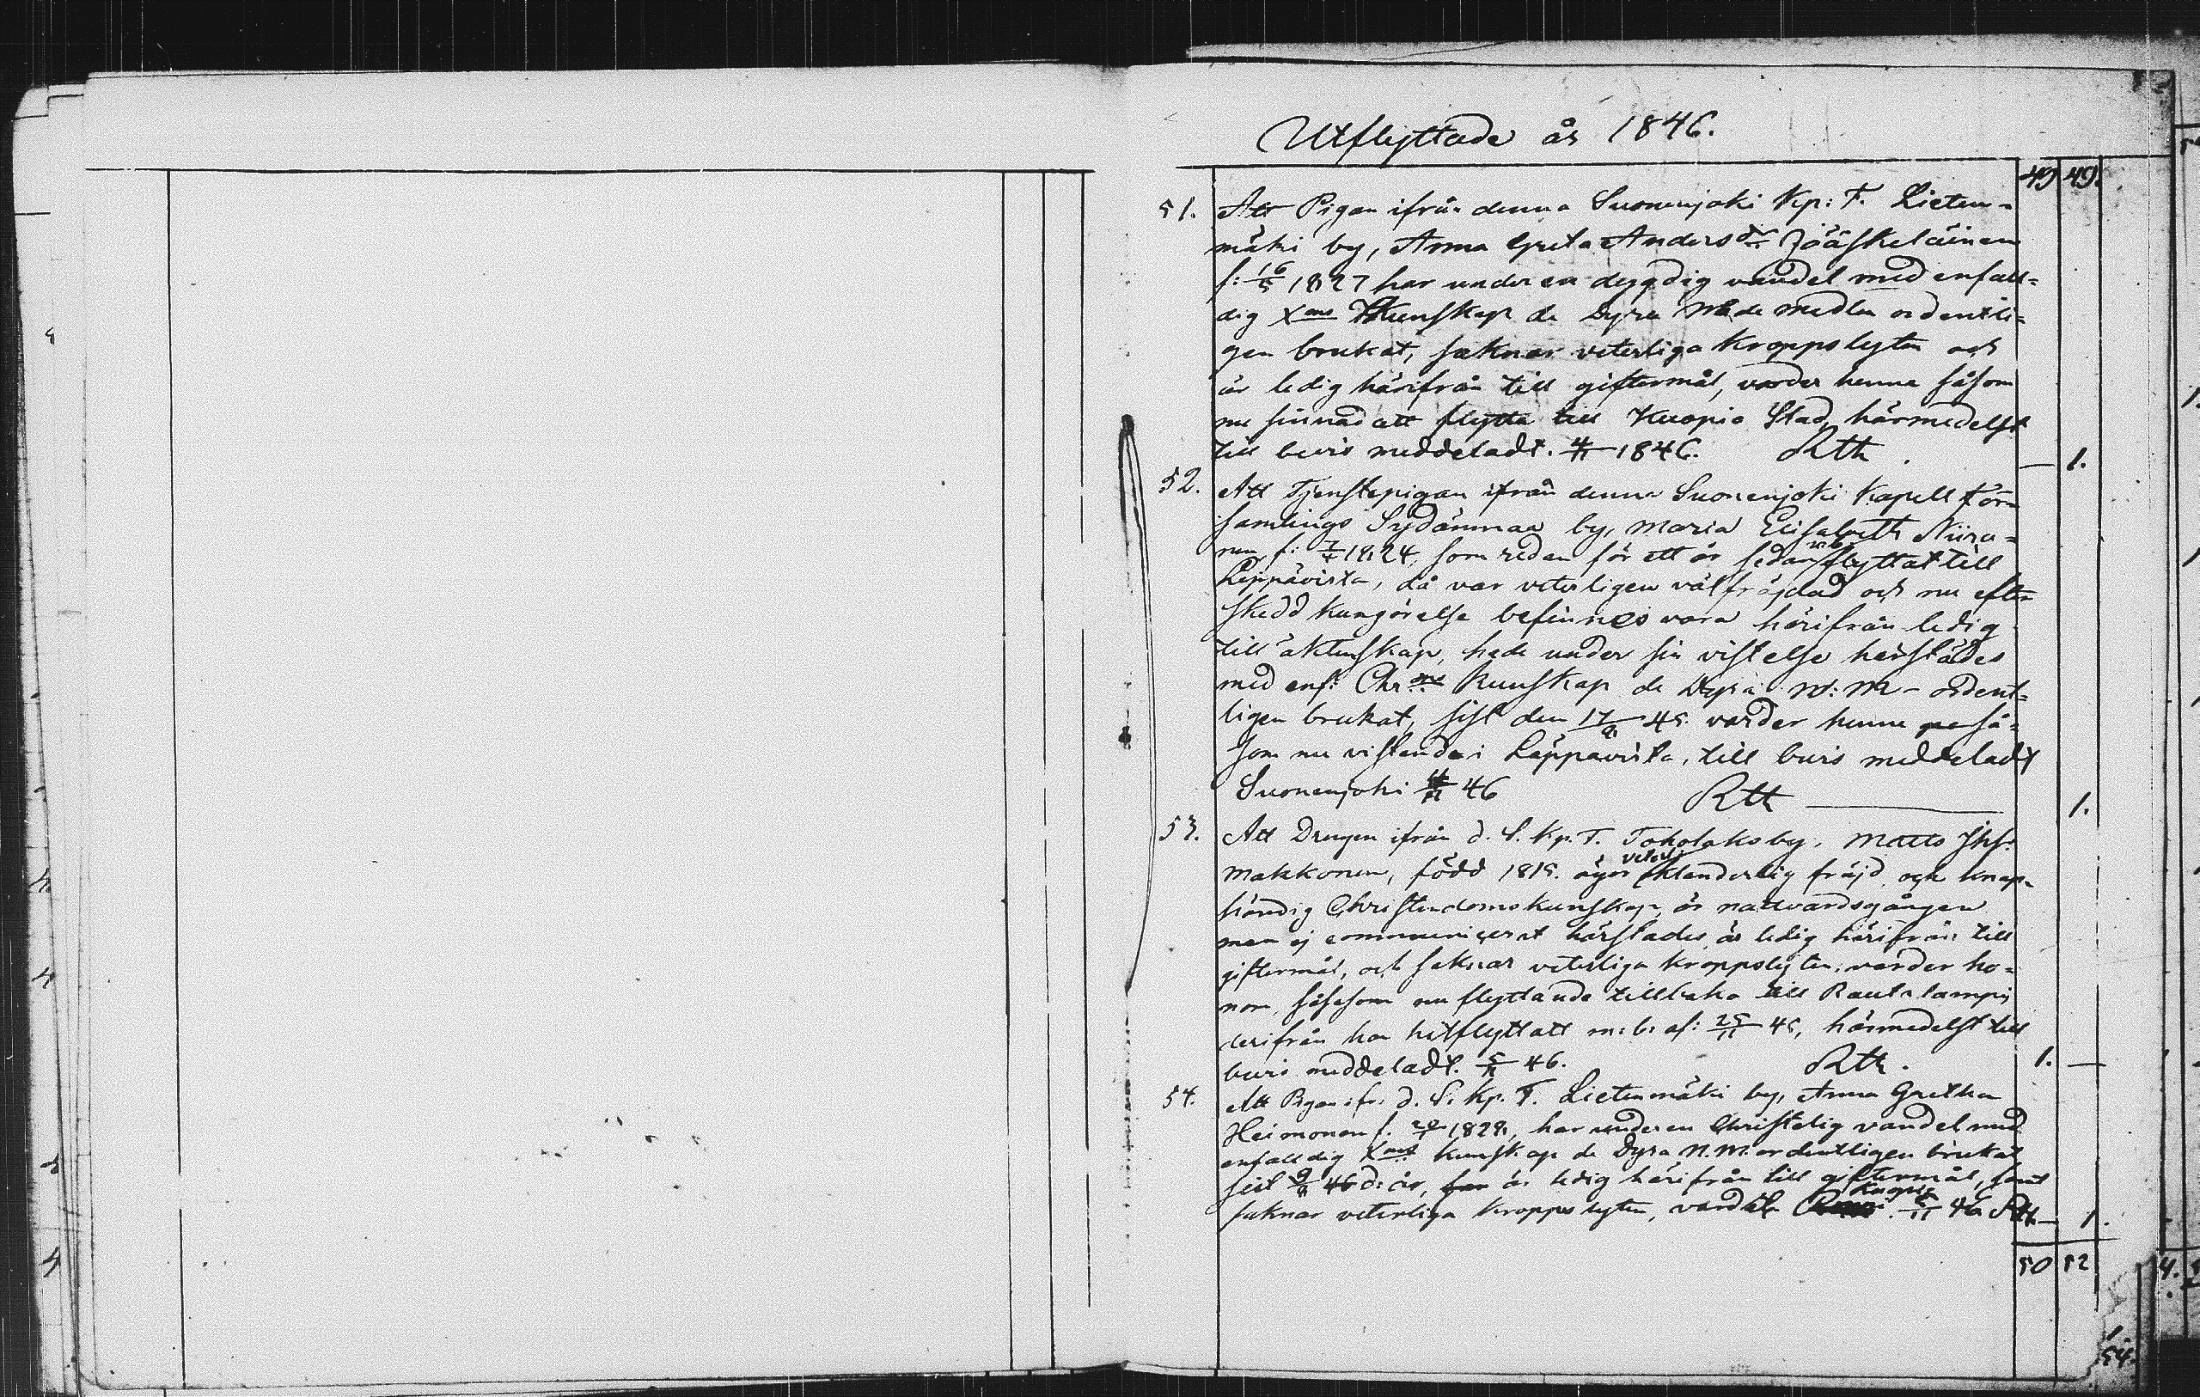 Utflyttade år 1846.
49 49.
51. Att Pigan ifrån denna Suonenjoki Kp: F. Lieten=
mäki by, Anna Greta Andersdr Jääskeläinen
f: 16/5 1827 har under en dygdig vandel med enfall=
dig Xans Kunskap de Dyra Nåde medlen ordentli=
gen brukat, saknar veterliga Kroppslyten och
är ledig härifrån till giftermål, varder henne såsom
nu sinnad att flytta till Kuopio Stad härmedelst
till bevis meddeladt. 4/11 1846. Rth. — 1.
52. Att Tjenstepigan ifrån denna Suonenjoki Kapell För=
samlings Sydänmaa by, Maria Elisabeth Niira=
nen f: 1824, som redan för ett år sedan flyttat till
Leppävirta, då var veterligen välfräjdad och nu efter
skedd kungörelse befinnes vara härifrån ledig
till äktenskap, hade under sin vistelse härstädes
med enf: Chr:ms Kunskap de Dyra N: M— ordent=
ligen brukat, sist den 17/8 45. varder henne så=
som nu vistande i Leppävirta, till bevis meddeladt
Suonenjoki 46 Rth — 1.
53. Att Drengen ifrån d. S. Kp. F. Tokolaks by, Matts Jhs:
Makkonen, född 1819. äger veterl oklanderlig fräjd, och knap=
händig Christendomskunskap, är nattvardsgången
men ej communicerat härstädes, är ledig härifrån till
giftermål, och saknar veterliga kroppslyten, varder ho=
nom, såsom nu flyttande tillbaka till Rautalampi
derifrån han hitflyttatt m: b: af: 25/11 45, härmedelst till
bevis meddeladt. 5/11 46. Rth. 1. —
54. Att Pigan ifr: d. S. Kp. F. Lietenmäki by, Anna Gretha
Heimonen f. 1828, har under en Christelig vandel med
enfalldig Xans kunskap de Dyra N. M. ordentligen brukat
sist d: år, är ledig härifrån till giftermål, samt
saknar veterliga Kroppslyten, vard: Kuopio 5/11 46 Rth — 1.
50 52
54.